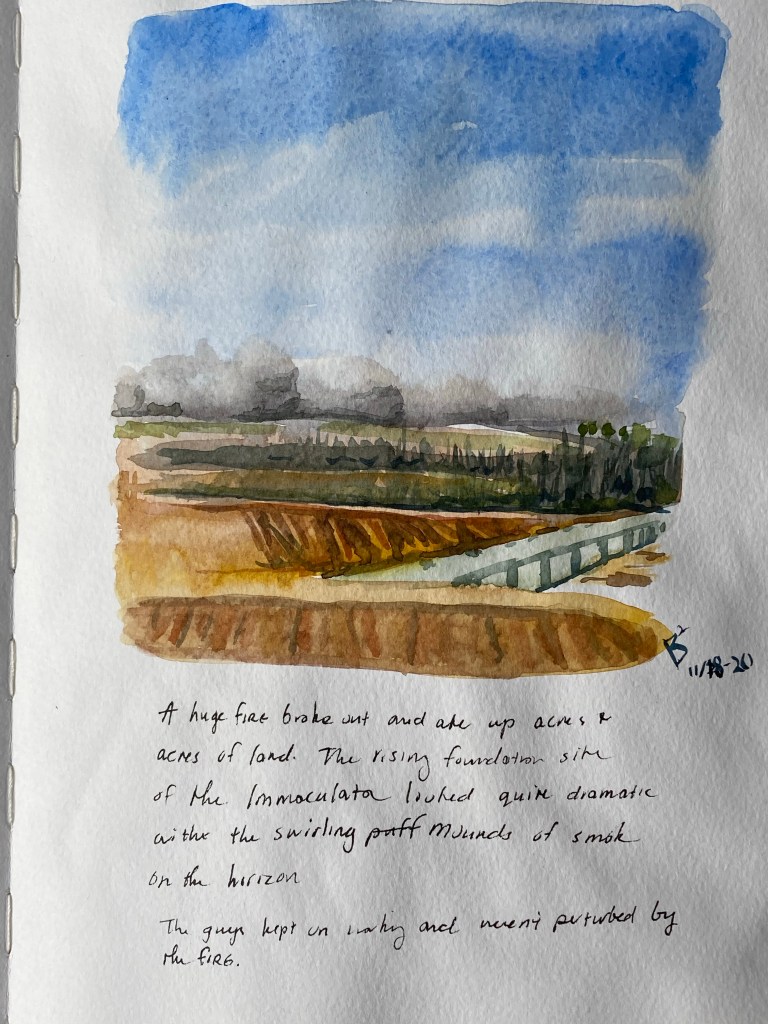 B² 11/18-20
A huge fire broke out and ate up acres &
acres of land. The rising foundation site
of the Immaculata looked quite dramatic
withe the swirling puff mounds of smok
on the horizon
The guys kept on working and weren't perturbed by
the fire.